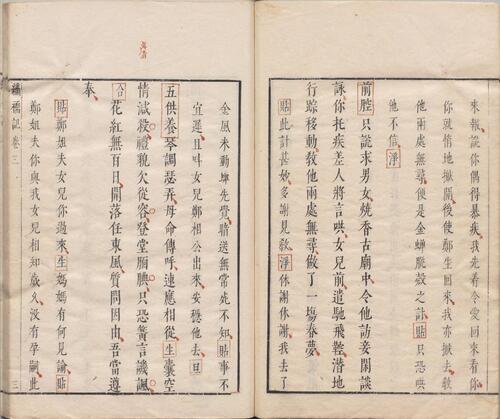 來報說你偶暴疾我先着令愛回來看你
你就悄地搬開後使鄭生回來我亦搬去教
他兩處無尋便是金蟬脫殼之計貼只恐哄
他不信淨
前腔只說求男女燒香古廟中令他訪妾閑談
詠你托疾差人將言哄女兒前遣馳飛鞚潛地
行踪移動教他兩處無尋做了一場春夢
貼此計甚妙多謝見教淨休謝休謝我去了
金風未動蟬先覺暗送無常死不知貼事不
宜遲且叫女兒鄭相公出來安穩他去旦
五供養琴調瑟弄母命傳呼速應相從生囊空
情減殺禮貌欠從容登堂靦腆只恐簧言譏諷
合花紅無百日開落任東風質問因由吾當遵
奉
貼鄭姐夫女兒你過來生媽媽有何見諭貼
鄭姐夫你與我女兒相知歲久沒有孕嗣此
繡襦記卷三
三